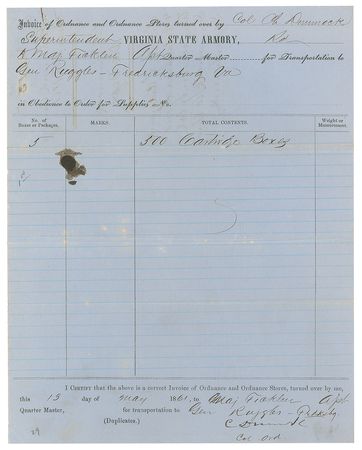 Invoice of Ordnance and Ordnance Stores turned over by Col C. Dimmock
Superintendent VIRGINIA STATE ARMORY,
Maj Ficklin Ast Quarter Master for Transportation to
Gen Ruggles - Fredericksburg Va
in Obedience to Order for Supplies No.
No. of Boxes or Packages. MARKS. TOTAL CONTENTS. Weight or Measurement.
5 500 Cartridge Boxes
I CERTIFY that the above is a correct Invoice of Ordnance and Ordnance Stores, turned over by me,
this 13 day of May 1861, to Maj Ficklin Ast
Quarter Master, for transportation to Gen Ruggles - Fredsbg.
(Duplicates.) C Dimmock
Col Ord